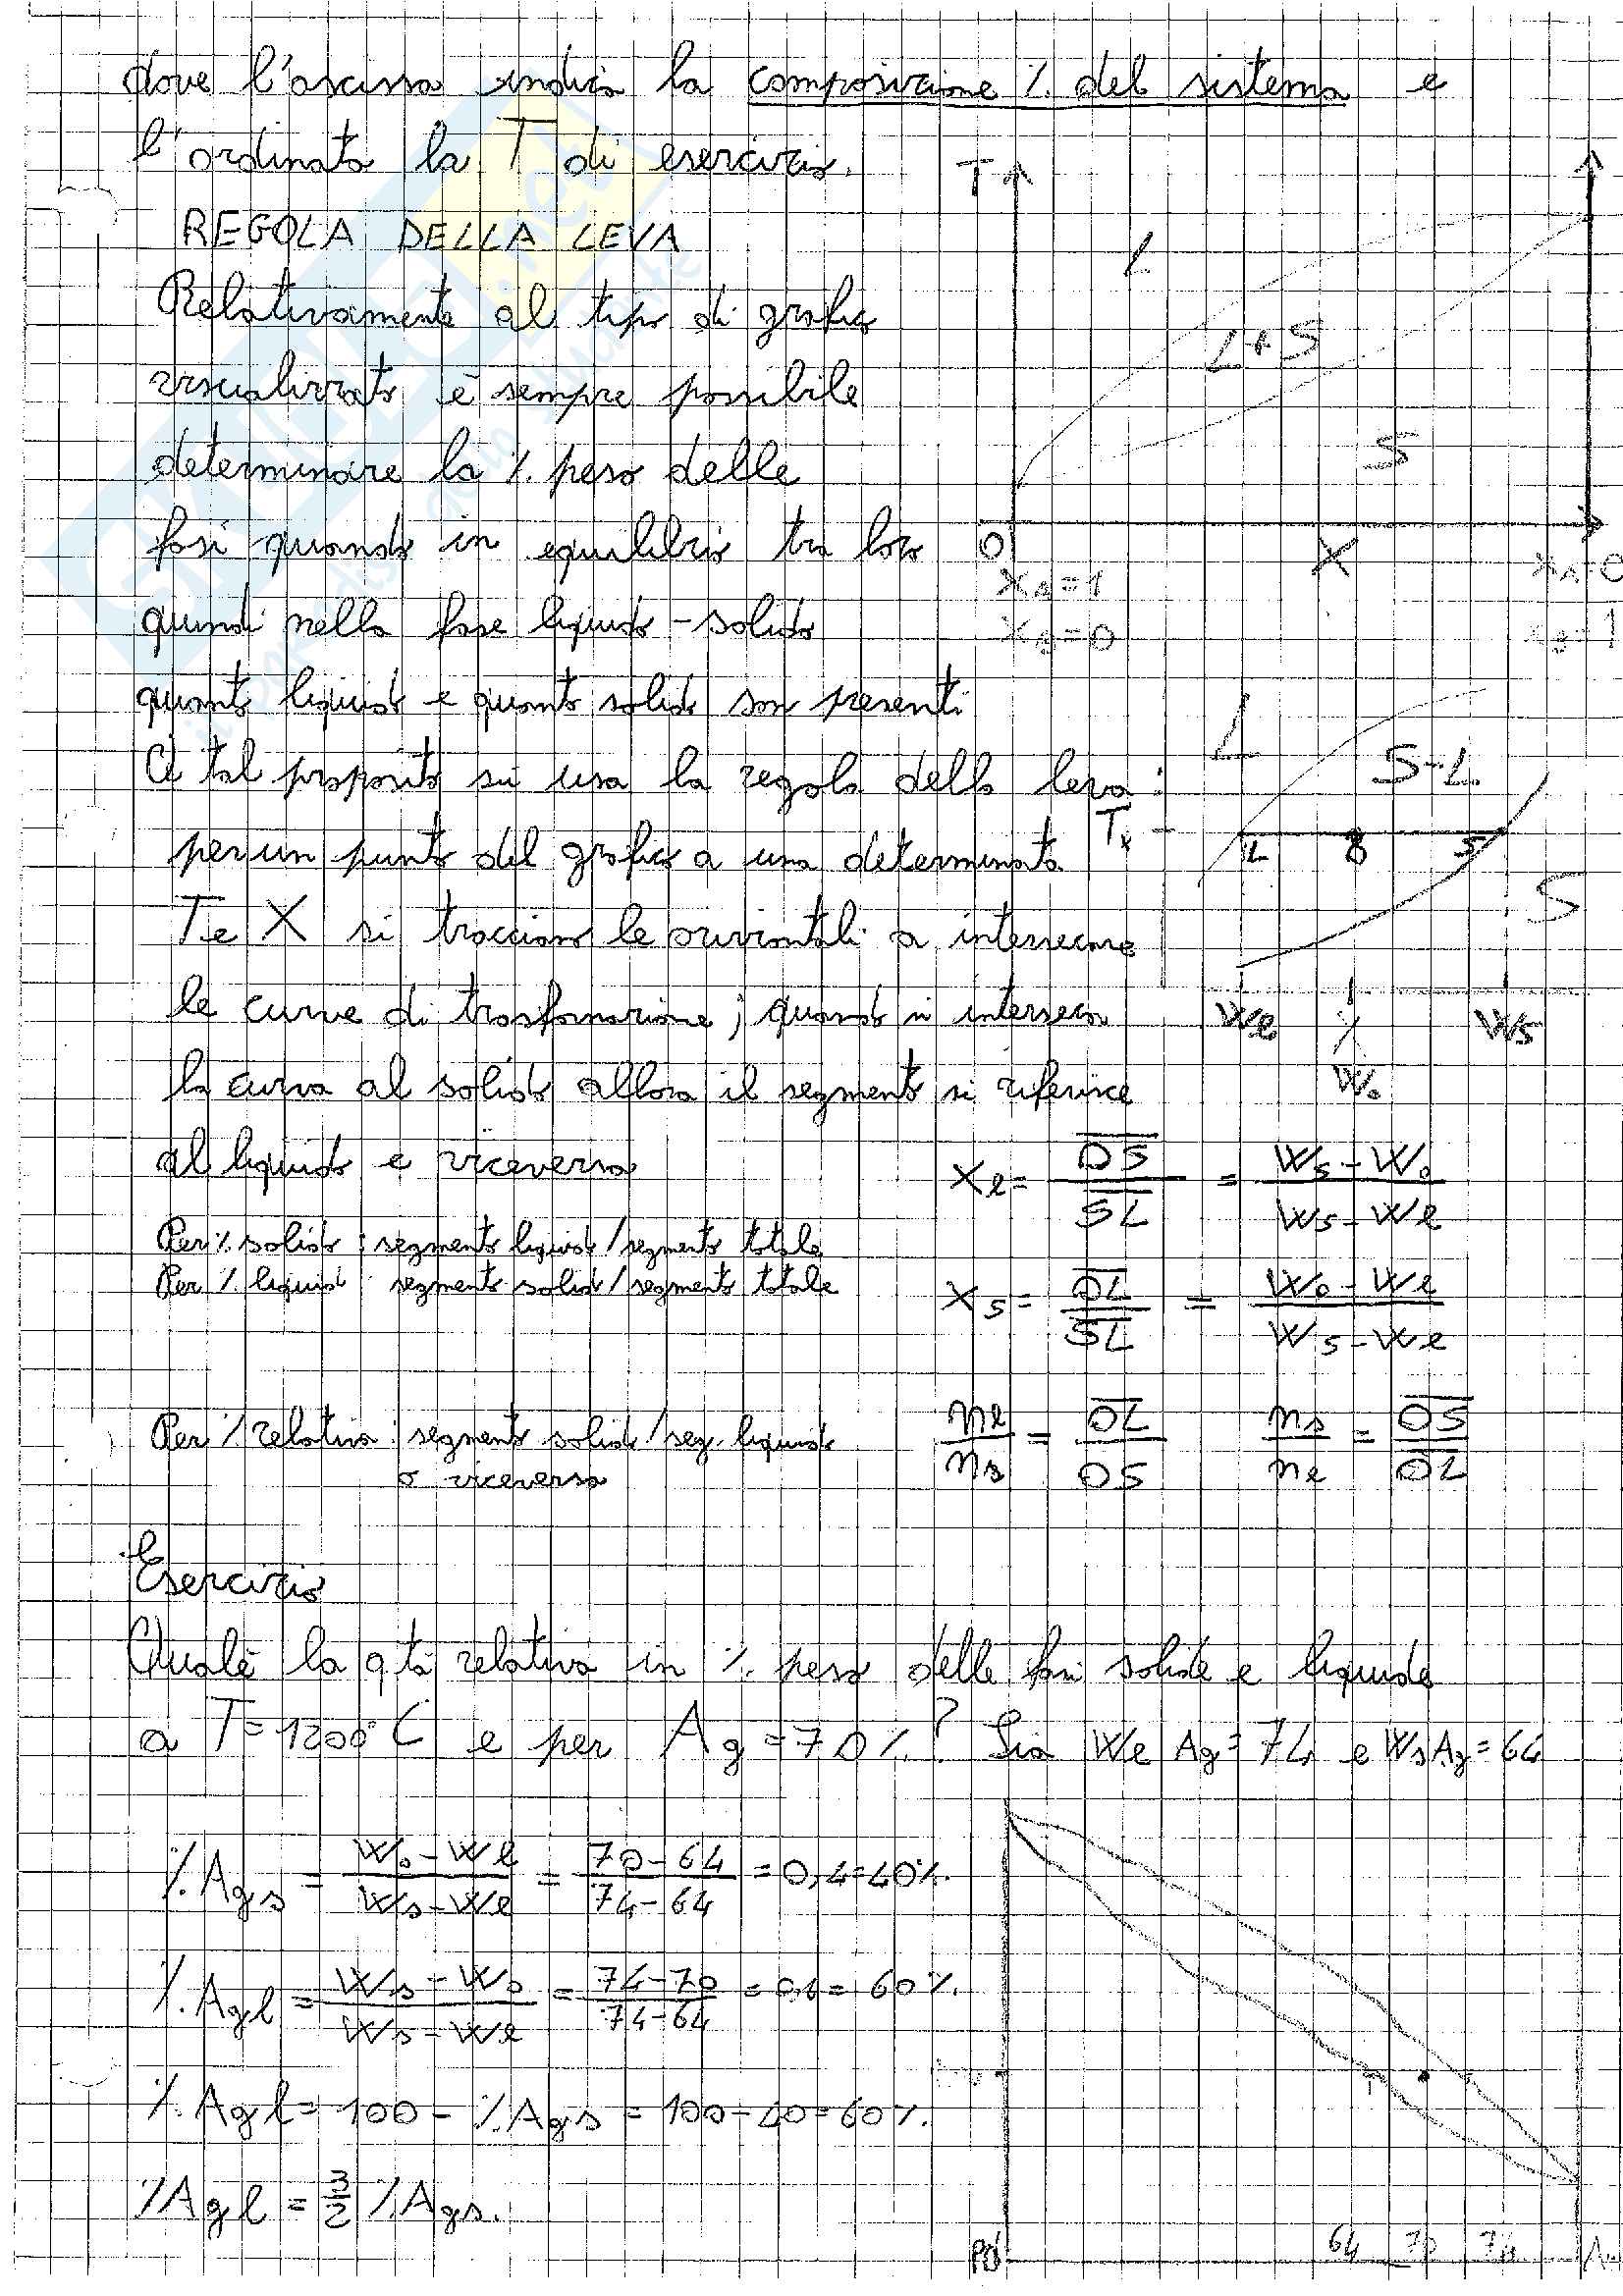 dove l'ascissa indica la composizione % del sistema e
l'ordinata la T di esercizio.
T
REGOLA DELLA LEVA
L
Relativamente al tipo di grafico
L+S
visualizzato è sempre possibile
determinare la % peso delle
S
fasi quando in equilibrio tra loro
0
X
XA=1
XA=0
quindi nella fase liquido-solido
XB=0
XB=1
quanto liquido e quanto solido son presenti
L
A tal proposito si usa la regola della leva:
S-L
per un punto del grafico a una determinata
Tx
L
O
S
T e X si tracciano le orizzontali a intersecare
S
le curve di trasformazione; quando si interseca
We
X
Ws
la curva al solido allora il segmento si riferisce
Wo
al liquido e viceversa
Xl = OS/SL = Ws-Wo/Ws-We
Per % solido: segmento liquido/segmento totale
Per % liquido: segmento solido/segmento totale
Xs = OL/SL = Wo-We/Ws-We
Per % relativa: segmento solido/seg. liquido
o viceversa
ml/ms = OL/OS ms/ml = OS/OL
Esercizio
Qual è la qtà relativa in % peso delle fasi solide e liquide
a T=1200°C e per Ag=70%? Sia We Ag=74 e Ws Ag=64
%Ags = Wo-We/Ws-We = 70-64/74-64 = 0,4=40%.
%Agl = Ws-Wo/Ws-We = 74-70/74-64 = 0,6= 60%.
%Agl = 100 - %Ags = 100-40=60%.
%Agl = 3/2 %Ags.
Pd
64 70 74